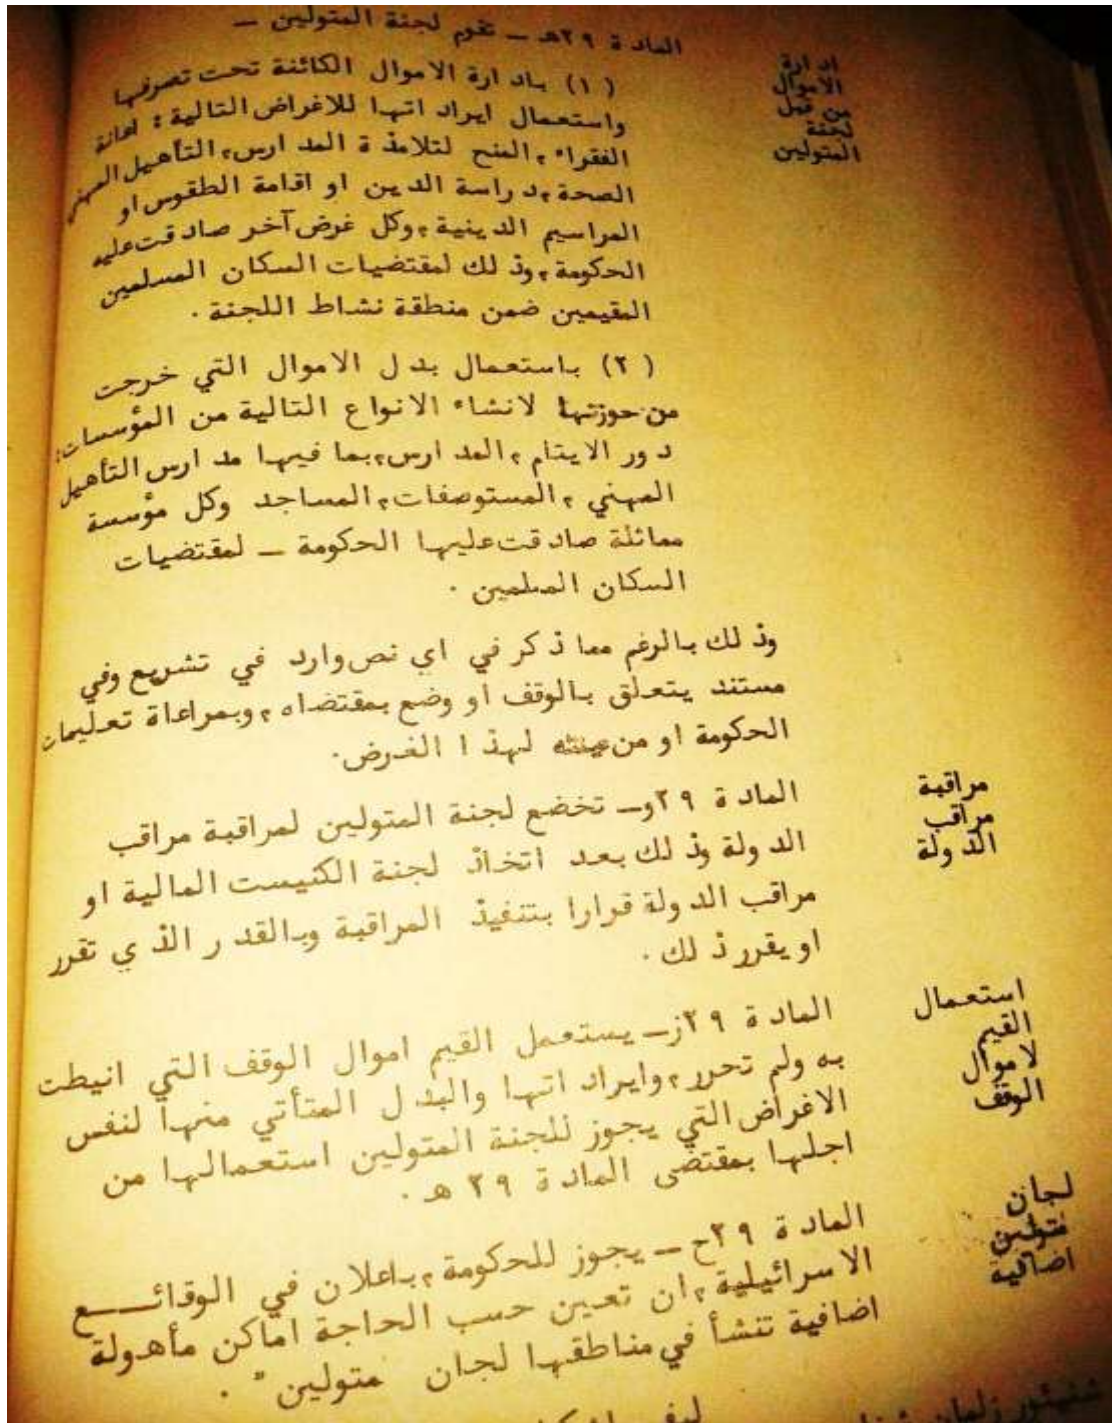 المادة ٢٩هـ ـ تقوم لجنة المتولين ـ
ادارة
الاموال
من قبل
لجنة
المتولين
(١) بادارة الاموال الكائنة تحت تصرفها
واستعمال ايراداتها للاغراض التالية: اعانة
الفقراء، المنح لتلامذة المدارس، التأهيل المهني
الصحة، دراسة الدين او اقامة الطقوس او
المراسيم الدينية، وكل غرض آخر صادقت عليه
الحكومة، وذلك لمقتضيات السكان المسلمين
المقيمين ضمن منطقة نشاط اللجنة.
(٢) باستعمال بدل الاموال التي خرجت
من حوزتها لانشاء الانواع التالية من المؤسسات:
دور الايتام، المدارس، بما فيها مدارس التأهيل
المهني، المستوصفات، المساجد وكل مؤسسة
مماثلة صادقت عليها الحكومة ـ لمقتضيات
السكان المسلمين.
وذلك بالرغم مما ذكر في اي نص وارد في تشريع وفي
مستند يتعلق بالوقف او وضع بمقتضاه، وبمراعاة تعليمات
الحكومة او من عينته لهذا الغرض.
مراقبة
مراقب
الدولة
المادة ٢٩و ـ تخضع لجنة المتولين لمراقبة مراقب
الدولة وذلك بعد اتخاذ لجنة الكنيست المالية او
مراقب الدولة قرارا بتنفيذ المراقبة وبالقدر الذي تقرر
او يقرر ذلك.
استعمال
القيم
لاموال
الوقف
المادة ٢٩ز ـ يستعمل القيم اموال الوقف التي انيطت
به ولم تحرر، وايراداتها والبدل المتأتي منها لنفس
الاغراض التي يجوز للجنة المتولين استعمالها من
اجلها بمقتضى المادة ٢٩ هـ.
لجان
متولين
اضافية
المادة ٢٩ح ـ يجوز للحكومة، باعلان في الوقائـــع
الاسرائيلية، ان تعين حسب الحاجة اماكن مأهولة
اضافية تنشأ في مناطقها لجان متولين".